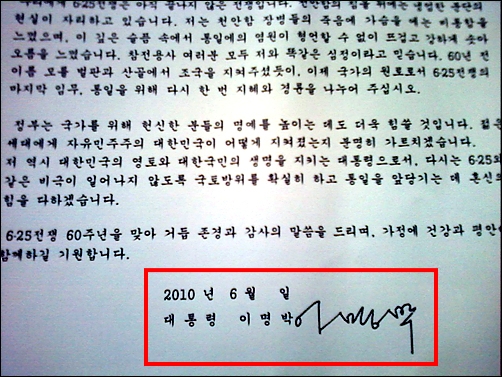 6·25전쟁은 아직 끝나지 않은 전쟁입니다. 천안함의 침몰 뒤에는 냉엄한 분단의
현실이 자리하고 있습니다. 저는 천안함 장병들의 죽음에 가슴을 에는 비통함을
느꼈으며, 이 깊은 슬픔 속에서 통일에의 염원이 형언할 수 없이 뜨겁고 강하게 솟아
오름을 느꼈습니다. 참전용사 여러분 모두 저와 똑같은 심정이라고 믿습니다. 60년 전
이름 모를 벌판과 산골에서 조국을 지켜주셨듯이, 이제 국가의 원로로서 6·25전쟁의
마지막 임무, 통일을 위해 다시 한 번 지혜와 경륜을 나누어 주십시오.
정부는 국가를 위해 헌신한 분들의 명예를 높이는 데도 더욱 힘쓸 것입니다. 젊은
세대에게 자유민주주의 대한민국이 어떻게 지켜졌는지 분명히 가르치겠습니다.
저 역시 대한민국의 영토와 대한국민의 생명을 지키는 대통령으로서, 다시는 6·25와
같은 비극이 일어나지 않도록 국토방위를 확실히 하고 통일을 앞당기는 데 혼신의
힘을 다하겠습니다.
6·25전쟁 60주년을 맞아 거듭 존경과 감사의 말씀을 드리며, 가정에 건강과 평안이
함께하길 기원합니다.
2010 년 6 월 일
대 통 령 이 명 박 이명박